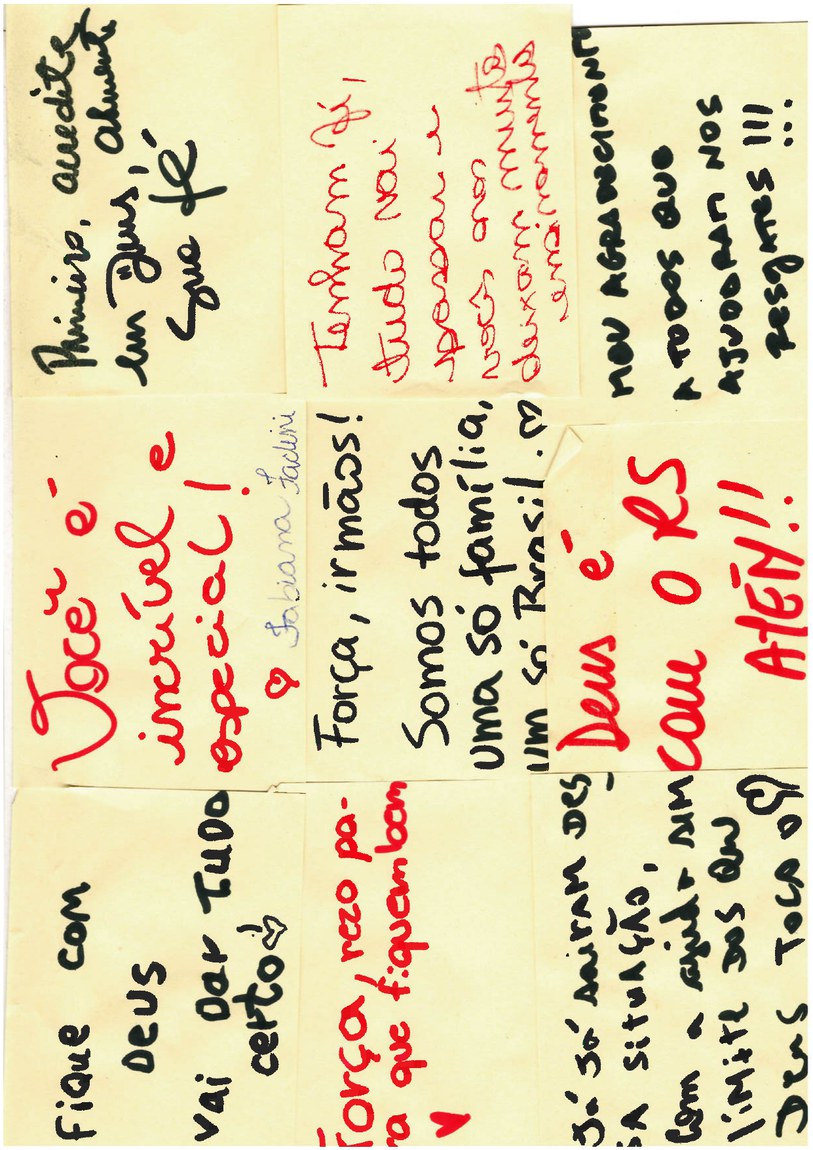 Fique com
Deus
vai dar tudo
certo!
Você é
incrível e
especial!
Fabiana
Primeiro, acredite
em Deus, alimente
fé
Força, rezo pa-
ra que fiquem bem
Força, irmãos!
Somos todos
uma só família,
um só Brasil.
Tenham fé,
tudo vai
passar e
vocês nos
deixam
Já já sairam des
sa situação,
com a ajuda sim
limite dos que
Deus toca o
Deus é
com o RS
AMÉM!!
MEU AGRADECIMENTO
A TODOS QUE
AJUDARAM NOS
RESGATES !!!